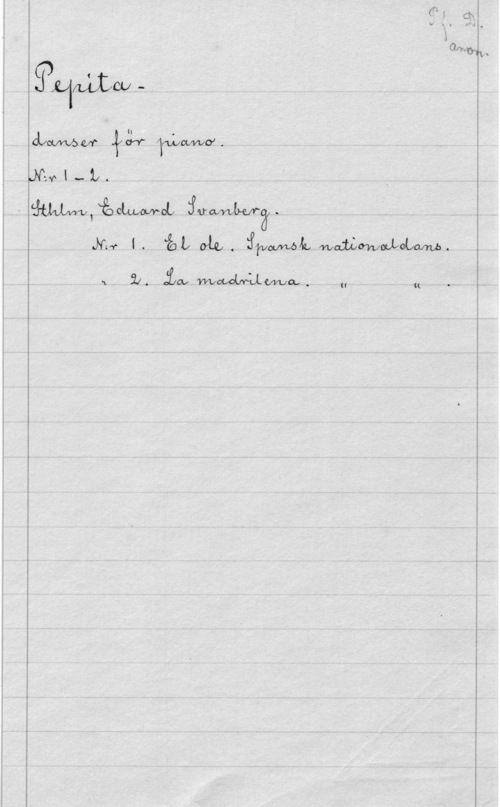 Pf. D.
anon.
Pepita-
danser för piano.
N:r 1-2.
Sthlm, Eduard Svanberg.
N:r 1. El ole. Spansk nationaldans.
" 2. La madrilena. " " .